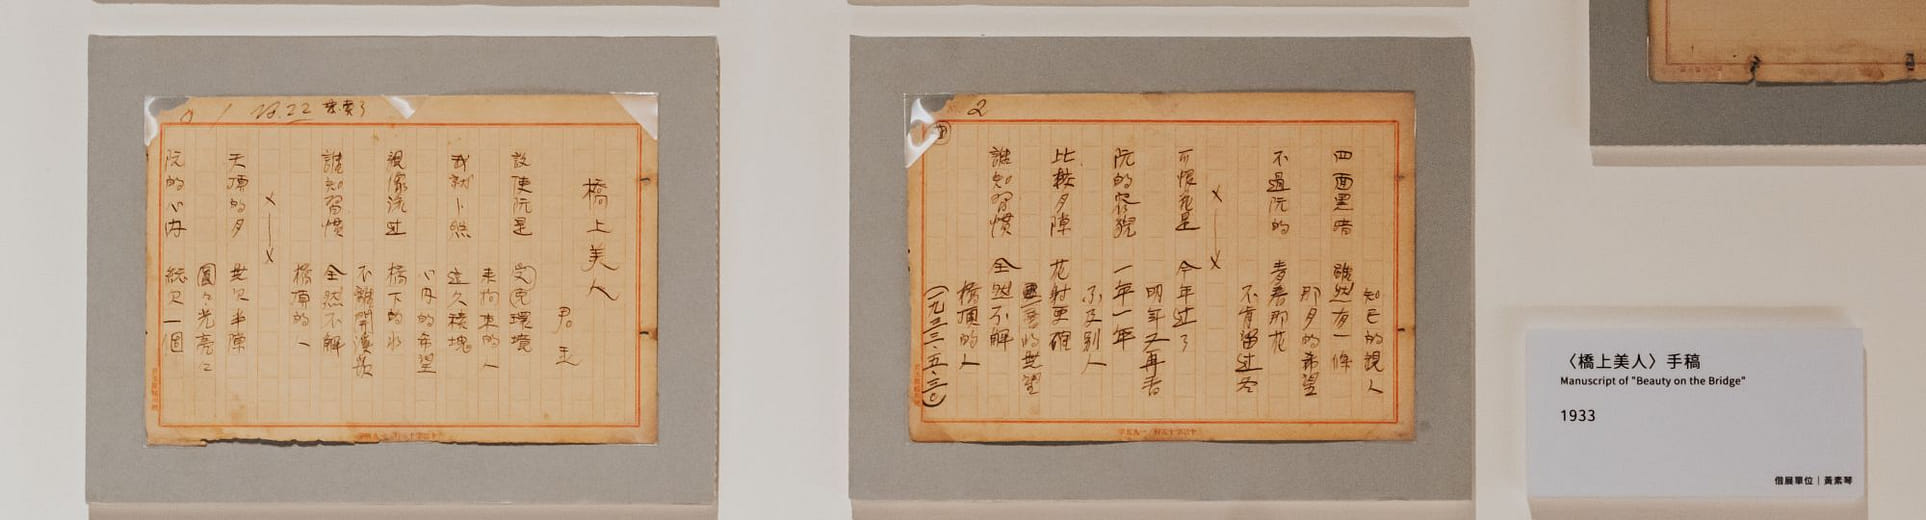 橋上美人
君玉
設使阮是 環境
來拘束的人
我就卜然
心內的希望
親像流过 橋下的水
不離開
誰知習慣 全然不解
橋頂的人
×——×
天頂的月 無欠半
圓々光亮々
阮的心內 總欠一個
2
知己的親人
四面黑暗 雖然有一條
那月的希望
不過阮的 青春那花
不肯留过冬
×——×
可恨花是 今年过了
明年又再香
阮的容貌 一年一年
不及別人
比 月 花 更
的無望
誰知習慣 全然不解
橋頂的人
(一九三三・五・三〇)
〈橋上美人〉手稿
Manuscript of "Beauty on the Bridge"
1933
借展單位｜黃素琴